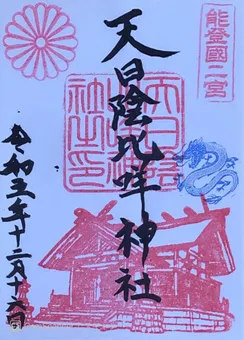 能登國二宮
天日陰比咩神社
社之印
令和五年十二月十六日